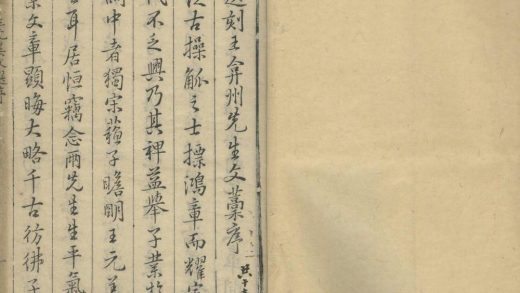 選刻王弇州先生文藁序
古操觚之士摽鴻章而耀
代不乏興乃其裨益舉子業於
中者獨宋蘓子瞻明王元美
耳居恒竊念兩先生生平氣
文章顯晦大略千古彷彿子